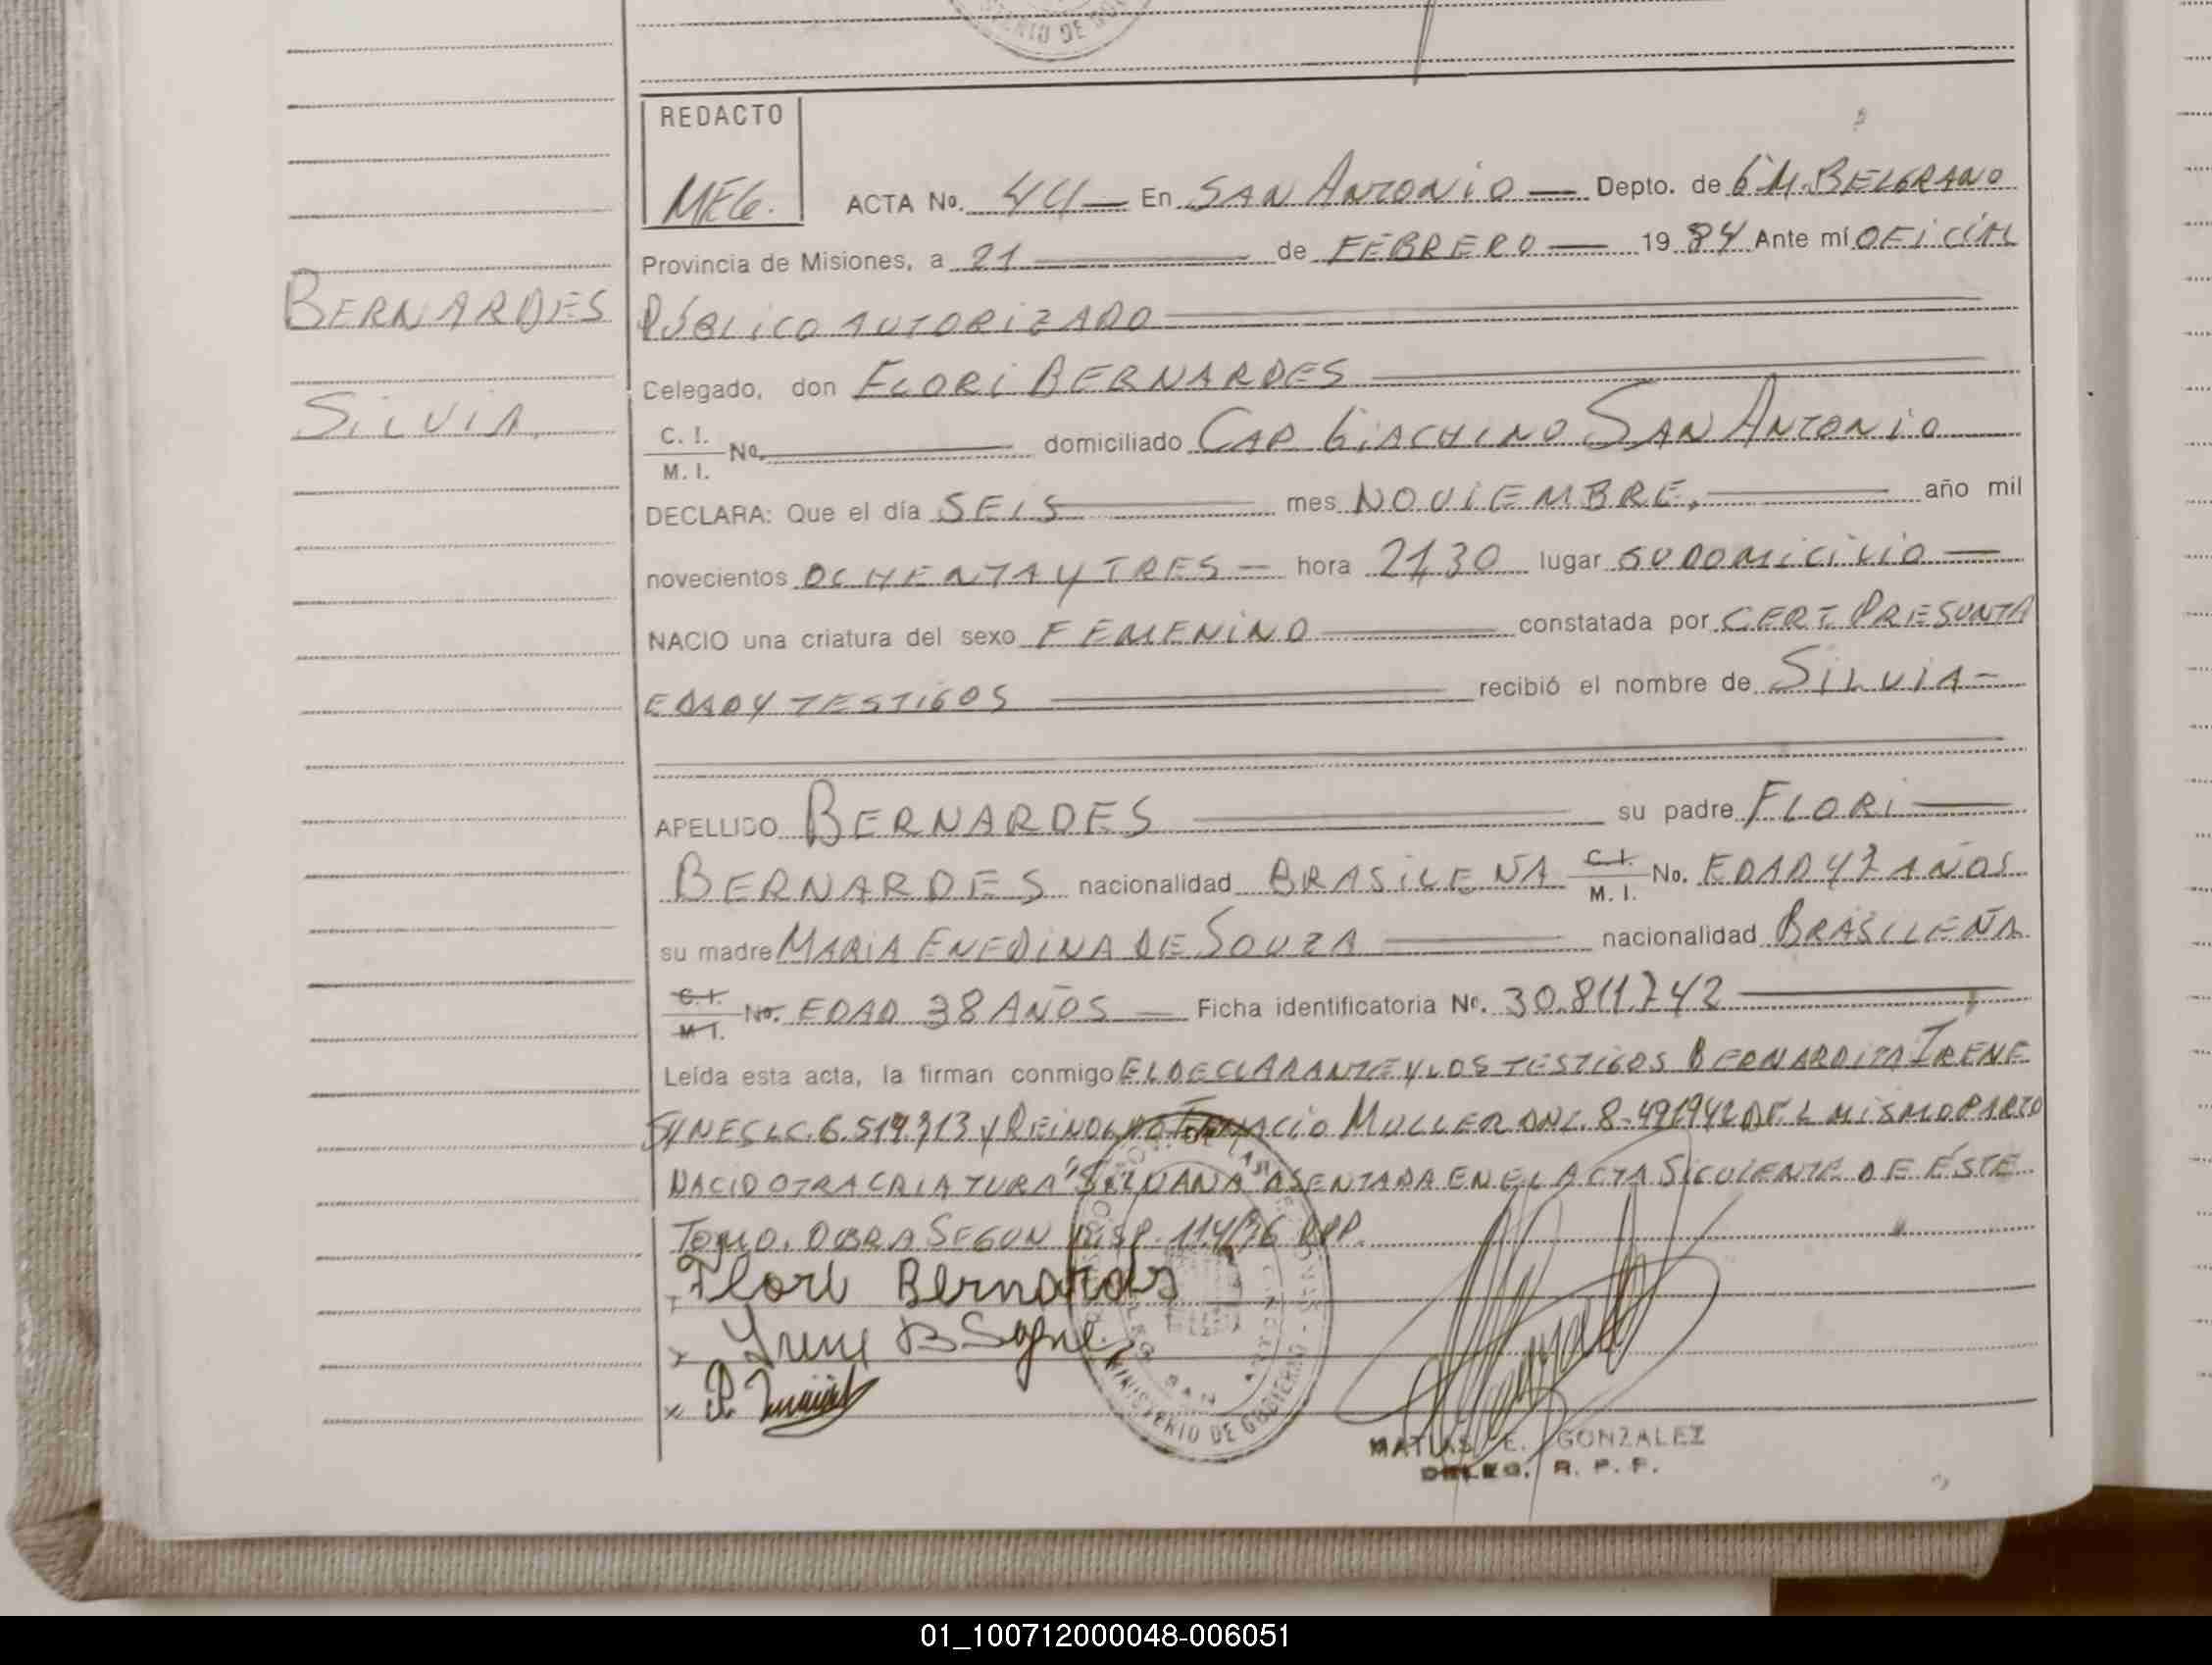 REDACTO
MEG.
ACTA No. 44 En SAN ANTONIO Depto. de G.M. BELGRANO
Provincia de Misiones, a 21 de FEBRERO 1984 Ante mí OFICIAL
BERNARDES
PÚBLICO AUTORIZADO
Celegado, don FLORI BERNARDES
SILVIA
C. I.
M. I.
No. domiciliado CAP GIACHINO SAN ANTONIO
DECLARA: Que el día SEIS mes NOVIEMBRE, año mil
novecientos OCHENTA Y TRES hora 21,30 lugar SU DOMICILIO
NACIO una criatura del sexo FEMENINO constatada por CERT. PRESUNTA
EDAD Y TESTIGOS recibió el nombre de SILVIA
APELLIDO BERNARDES su padre FLORI
BERNARDES nacionalidad BRASILEÑA C. I. M. I. No. EDAD 47 AÑOS
su madre MARIA ENEDINA DE SOUZA nacionalidad BRASILEÑA
C. I. M. I. No. EDAD 38 AÑOS Ficha identificatoria No. 30.811.742
Leída esta acta, la firman conmigo EL DECLARANTE Y LOS TESTIGOS BERNARDITA IRENE
L.C. 6.519.313 Y REINOLDO MULLER DNI. 8.491942 DEL MISMO PARTO
NACIO OTRA CRIATURA "SILVANA" ASENTADA EN EL ACTA SIGUIENTE DE ÉSTE
TOMO. OBRA SEGUN DISP. 114/76 RPP.
Flori Bernardes
MINISTERIO DE GOBIERNO
MATIAS E. GONZALEZ
DELEG. R. P. P.
01_100712000048-006051